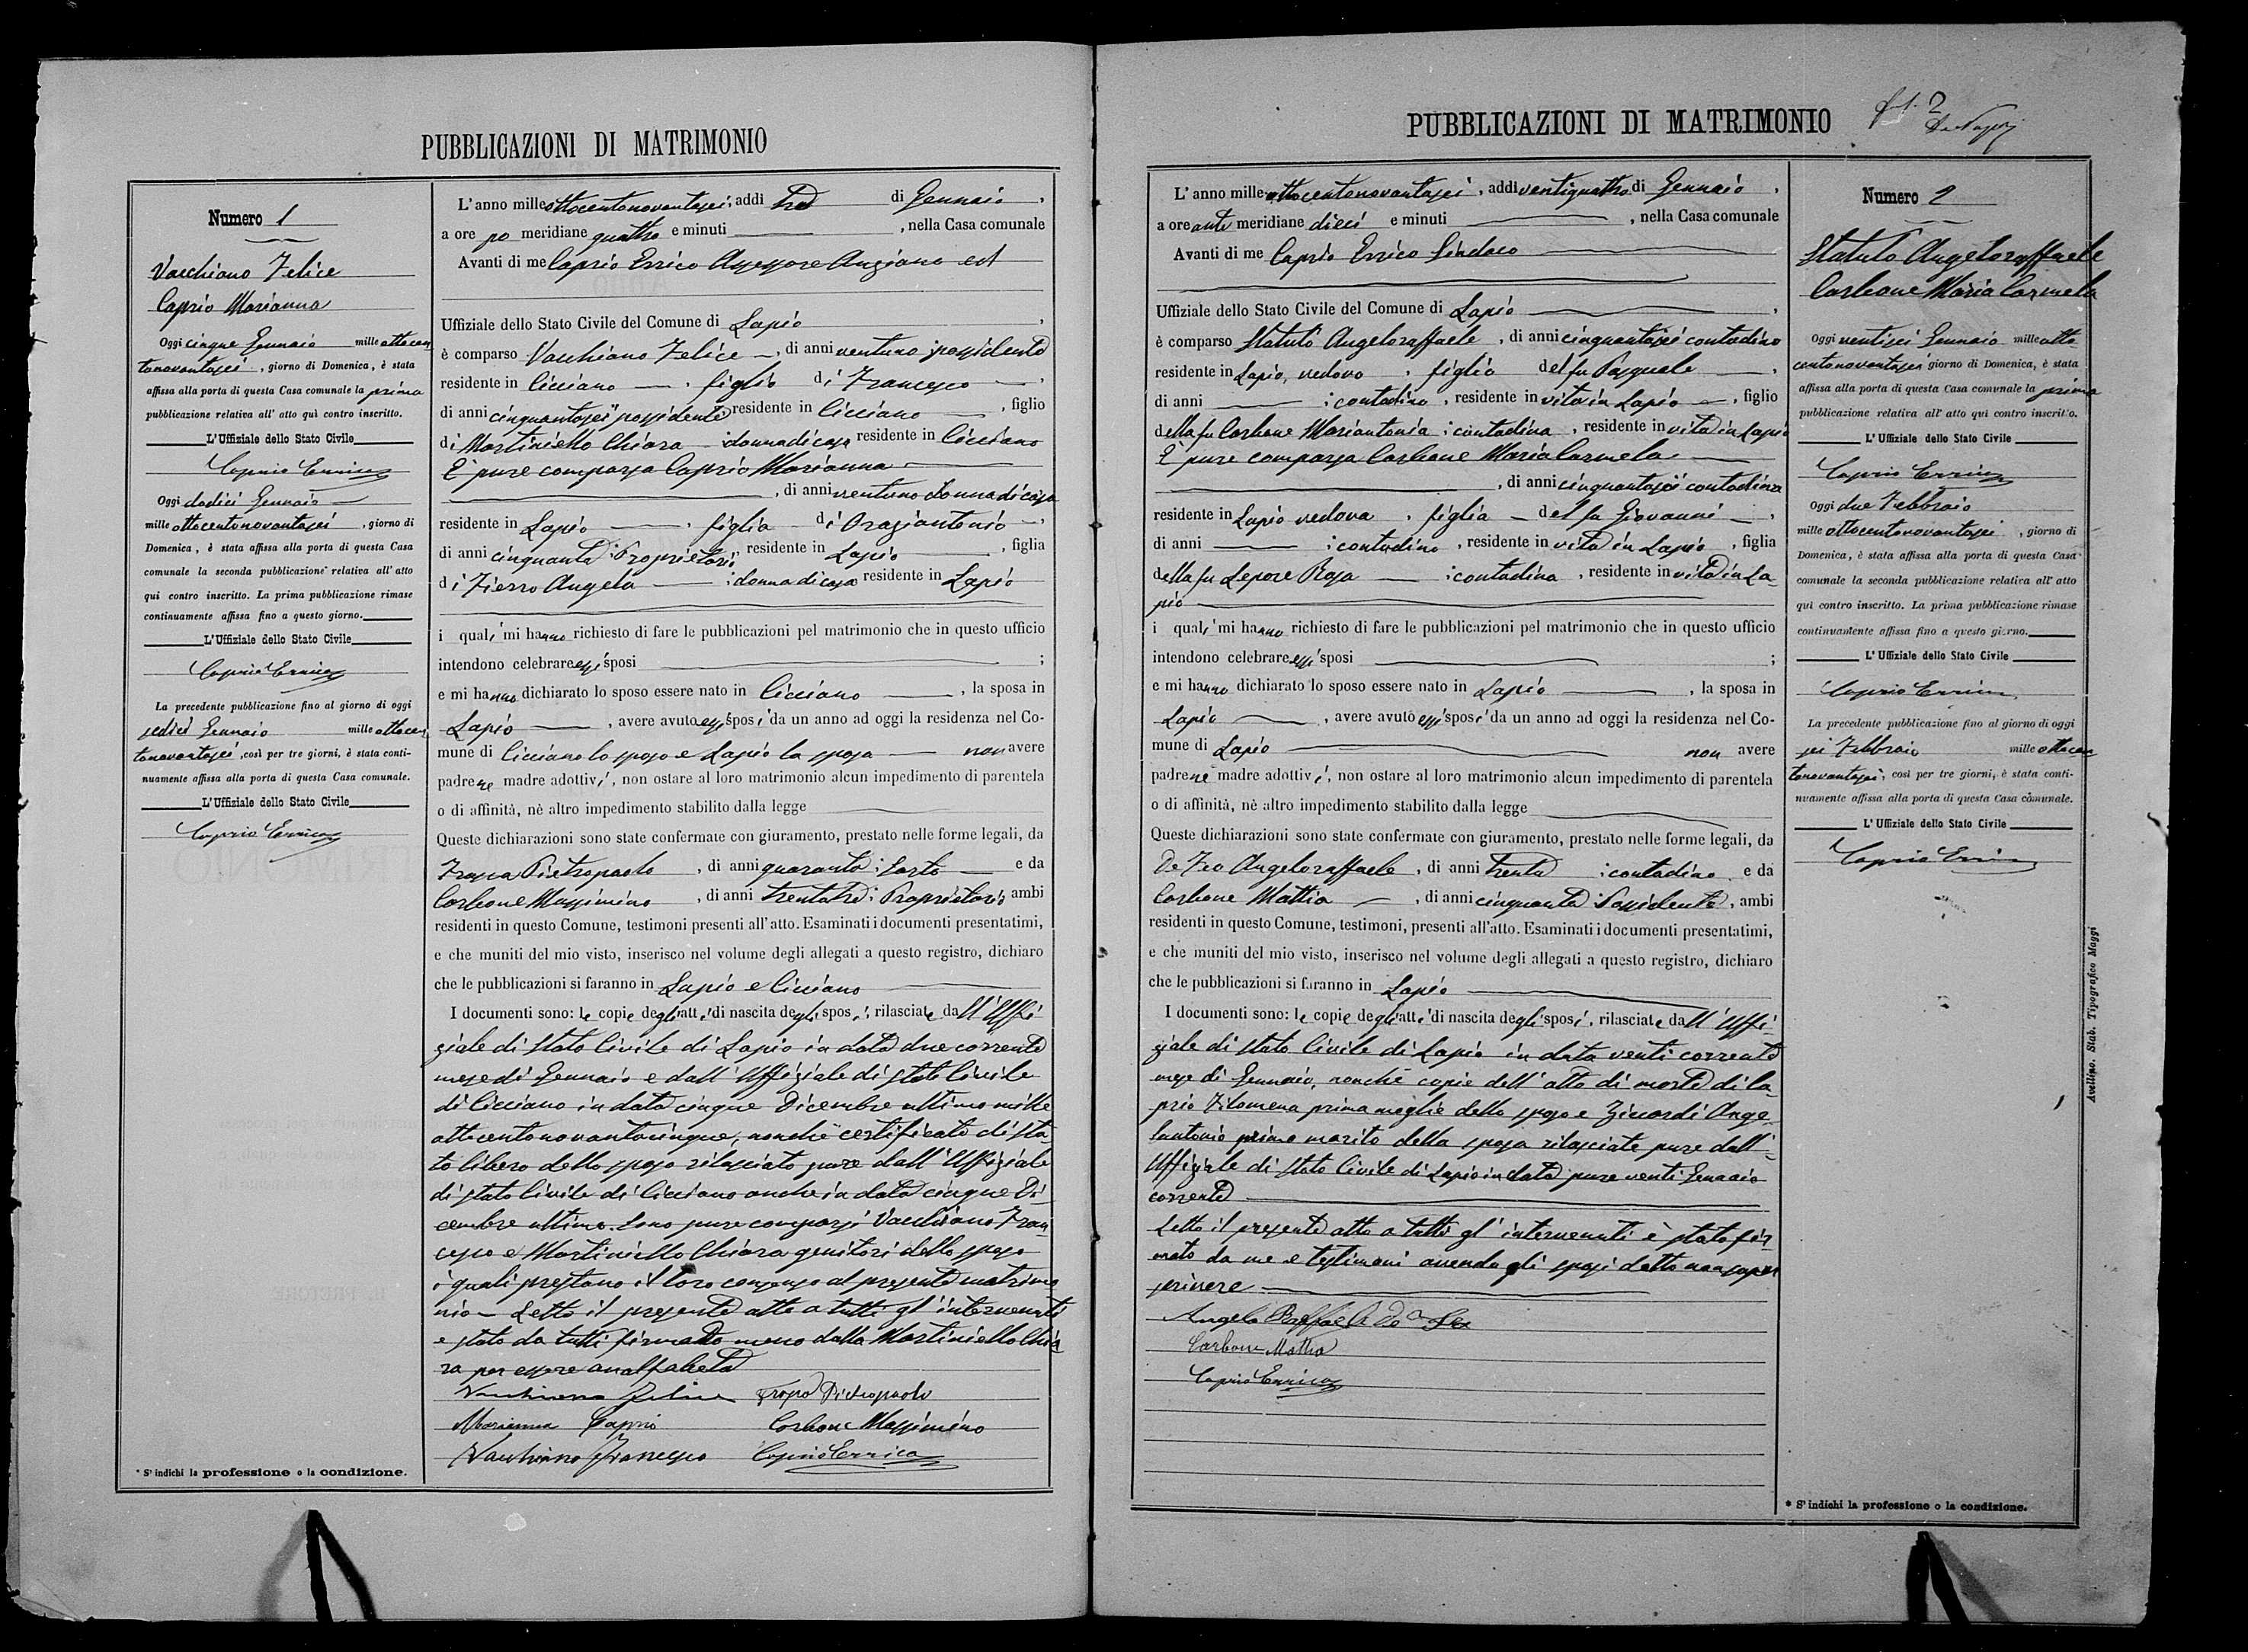 PUBBLICAZIONI DI MATRIMONIO
Numero 1
Vacchiano Felice
Caprio Marianna
Oggi cinque Gennaio mille ottocen
tonovantasei, giorno di Domenica, è stata
affissa alla porta di questa Casa comunale la prima
pubblicazione relativa all' atto quì contro inscritto.
L'Uffiziale dello Stato Civile
Caprio Errico
Oggi dodici Gennaio
mille ottocentonovantasei, giorno di
Domenica, è stata affissa alla porta di questa Casa
comunale la seconda pubblicazione relativa all' atto
qui contro inscritto. La prima pubblicazione rimase
continuamente affissa fino a questo giorno.
L'Uffiziale dello Stato Civile
Caprio Errico
La precedente pubblicazione fino al giorno di oggi
sedici Gennaio mille ottocen
tonovantasei, così per tre giorni, è stata conti-
nuamente affissa alla porta di questa Casa comunale.
L'Uffiziale dello Stato Civile
Caprio Errico
* S' indichi la professione o la condizione.
L' anno mille ottocentonovantasei, addì tre di Gennaio,
a ore po meridiane quattro e minuti , nella Casa comunale
Avanti di me Caprio Errico Assessore Anziano ed
Uffiziale dello Stato Civile del Comune di Lapio,
è comparso Vacchiano Felice, di anni ventuno possidente
residente in Cicciano, figlio di Francesco,
di anni cinquantasei possidente residente in Cicciano, figlio
di Martiniello Chiara donna di casa residente in Cicciano
È pure comparsa Caprio Marianna
, di anni ventuno donna di casa
residente in Lapio, figlia di Oraziantonio,
di anni cinquanta Proprietario residente in Lapio, figlia
di Fierro Angela donna di casa residente in Lapio
i quali mi hanno richiesto di fare le pubblicazioni pel matrimonio che in questo ufficio
intendono celebrare essi sposi ;
e mi hanno dichiarato lo sposo essere nato in Cicciano, la sposa in
Lapio, avere avuto essi sposi da un anno ad oggi la residenza nel Co-
mune di Cicciano lo sposo e Lapio la sposa non avere
padre ne madre adottivi, non ostare al loro matrimonio alcun impedimento di parentela
o di affinità, nè altro impedimento stabilito dalla legge
Queste dichiarazioni sono state confermate con giuramento, prestato nelle forme legali, da
Pietropaolo, di anni quaranta Sarto e da
Carbone Massimino, di anni trentatre Proprietario ambi
residenti in questo Comune, testimoni presenti all' atto. Esaminati i documenti presentatimi,
e che muniti del mio visto, inserisco nel volume degli allegati a questo registro, dichiaro
che le pubblicazioni si faranno in Lapio e Cicciano
I documenti sono: le copie degli atti di nascita degli sposi, rilasciate dall' Uffi
ziale di Stato Civile di Lapio in data due corrente
mese di Gennaio e dall' Uffiziale di Stato Civile
di Cicciano in data cinque Dicembre ultimo mille
ottocentonovantacinque, nonchè certificato di sta
to libero dello sposo rilasciato pure dall' Uffiziale
di stato Civile di Cicciano anche in data cinque Di
cembre ultimo. Sono pure comparsi Vacchiano Fran
cesco e Martiniello Chiara genitori dello sposo
i quali prestano il loro consenso al presente matrimo
nio Letto il presente atto a tutti gl' intervenuti
e stato da tutti firmatto meno dalla Martiniello Chia
ra per essere analfabeta
Vacchiano Felice Pietropaolo
Marianna Caprio Carbone Massimino
Vacchiano Francesco Caprio Errico
PUBBLICAZIONI DI MATRIMONIO
L' anno mille ottocentonovantasei, addì ventiquattro di Gennaio,
a ore ante meridiane dieci e minuti , nella Casa comunale
Avanti di me Caprio Errico Sindaco
Uffiziale dello Stato Civile del Comune di Lapio,
è comparso Statuto Angeloraffaele, di anni cinquantasei contadino
residente in Lapio, vedovo, figlio del fu Pasquale,
di anni contadino, residente in vita in Lapio, figlio
della fu Carbone Mariantonia contadina, residente in vita in Lapio
È pure comparsa Carbone Maria Carmela
, di anni cinquantasei contadina
residente in Lapio vedova, figlia del fu Giovanni,
di anni contadino, residente in vita in Lapio, figlia
della fu Lepore Rosa contadina, residente in vita in La-
pio
i quali mi hanno richiesto di fare le pubblicazioni pel matrimonio che in questo ufficio
intendono celebrare essi sposi ;
e mi hanno dichiarato lo sposo essere nato in Lapio, la sposa in
Lapio, avere avuto essi sposi da un anno ad oggi la residenza nel Co-
mune di Lapio non avere
padre nè madre adottivi, non ostare al loro matrimonio alcun impedimento di parentela
o di affinità, nè altro impedimento stabilito dalla legge
Queste dichiarazioni sono state confermate con giuramento, prestato nelle forme legali, da
De Feo Angeloraffaele, di anni trenta contadino e da
Carbone Mattia, di anni cinquanta Possidente, ambi
residenti in questo Comune, testimoni, presenti all'atto. Esaminati i documenti presentatimi,
e che muniti del mio visto, inserisco nel volume degli allegati a questo registro, dichiaro
che le pubblicazioni si faranno in Lapio
I documenti sono: le copie degli atti di nascita degli sposi, rilasciate dall' Uffi-
ziale di Stato Civile di Lapio in data venti corrente
mese di Gennaio, nonchè copie dell' atto di morte di Ca
prio Filomena prima moglie dello sposo e Ziccardi Ange
lantonio primo marito della sposa rilasciate pure dall'
Uffiziale di Stato Civile di Lapio in data pure venti Gennaio
corrente
Letto il presente atto a tutti gl' intervenuti è stato fir-
mato da me e testimoni avendo gli sposi detto non saper
scrivere
Angelo Raffaele De Feo
Carbone Mattia
Caprio Errico
Numero 2
Statuto Angeloraffaele
Carbone Maria Carmela
Oggi ventisei Gennaio mille otto
centonovantasei giorno di Domenica, è stata
affissa alla porta di questa Casa comunale la prima
pubblicazione relativa all' atto qui contro inscritto.
L' Uffiziale dello Stato Civile
Caprio Errico
Oggi due Febbraio
mille ottocentonovantasei, giorno di
Domenica, è stata affissa alla porta di questa Casa
comunale la seconda pubblicazione relativa all' atto
quì contro inscritto. La prima pubblicazione rimase
continuamente affissa fino a questo giorno.
L' Uffiziale dello Stato Civile
Caprio Errico
La precedente pubblicazione fino al giorno di oggi
sei Febbraio mille ottocen
tonovantasei, così per tre giorni, è stata conti-
nuamente affissa alla porta di questa Casa comunale.
L' Uffiziale dello Stato Civile
Caprio Errico
Avellino. Stab. Tipografico Maggi
* S' indichi la professione o la condizione.